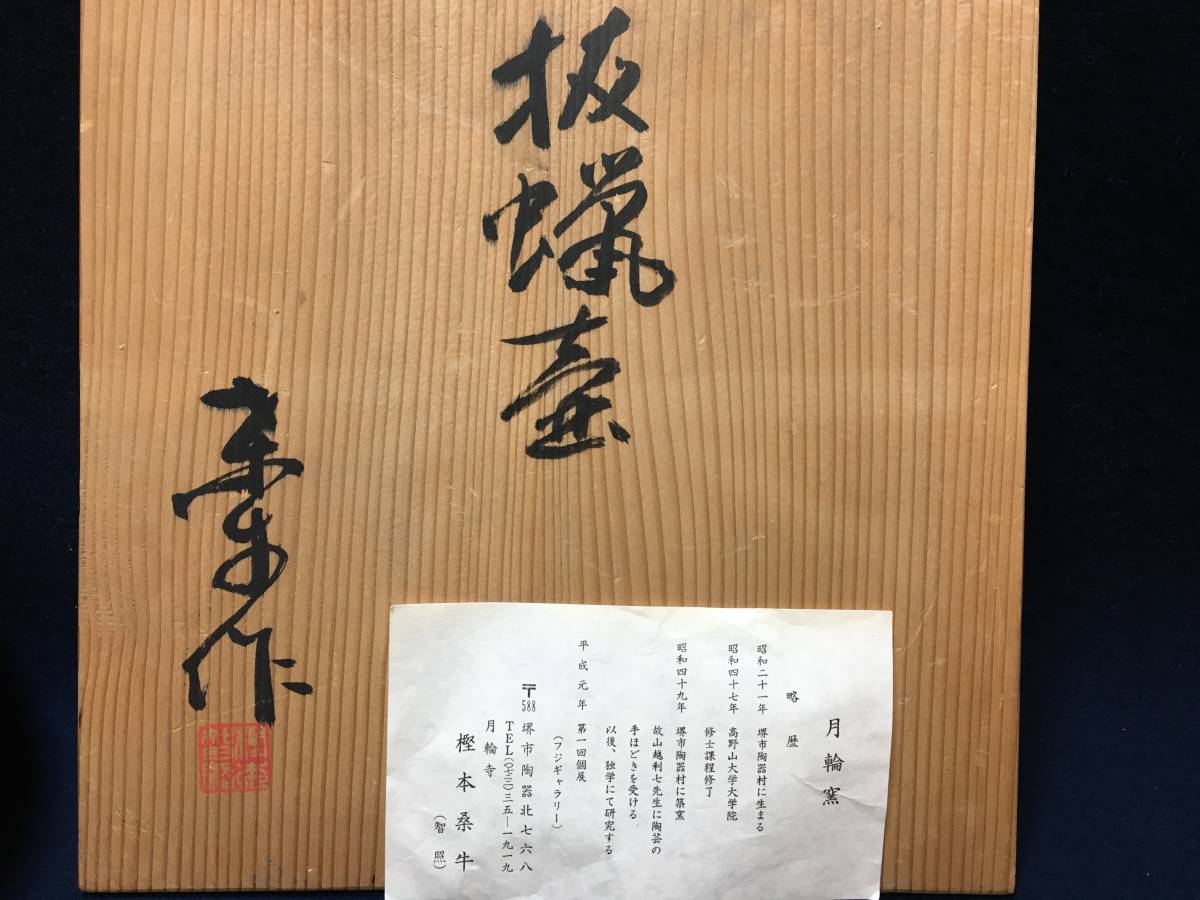 抜蝋壷
桑牛作
月輪窯
略歴
昭和二十一年 堺市陶器村に生まる
昭和四十七年 高野山大学大学院
修士課程修了
昭和四十九年 堺市陶器村に築窯
故山越利七先生に陶芸の
手ほどきを受ける
以後、独学にて研究する
平成元年 第一回個展
(フジギャラリー)
〒588 堺市陶器北七六八
TEL(〇七二二)三五―一九一九
月輪寺
樫本桑牛
(智照)